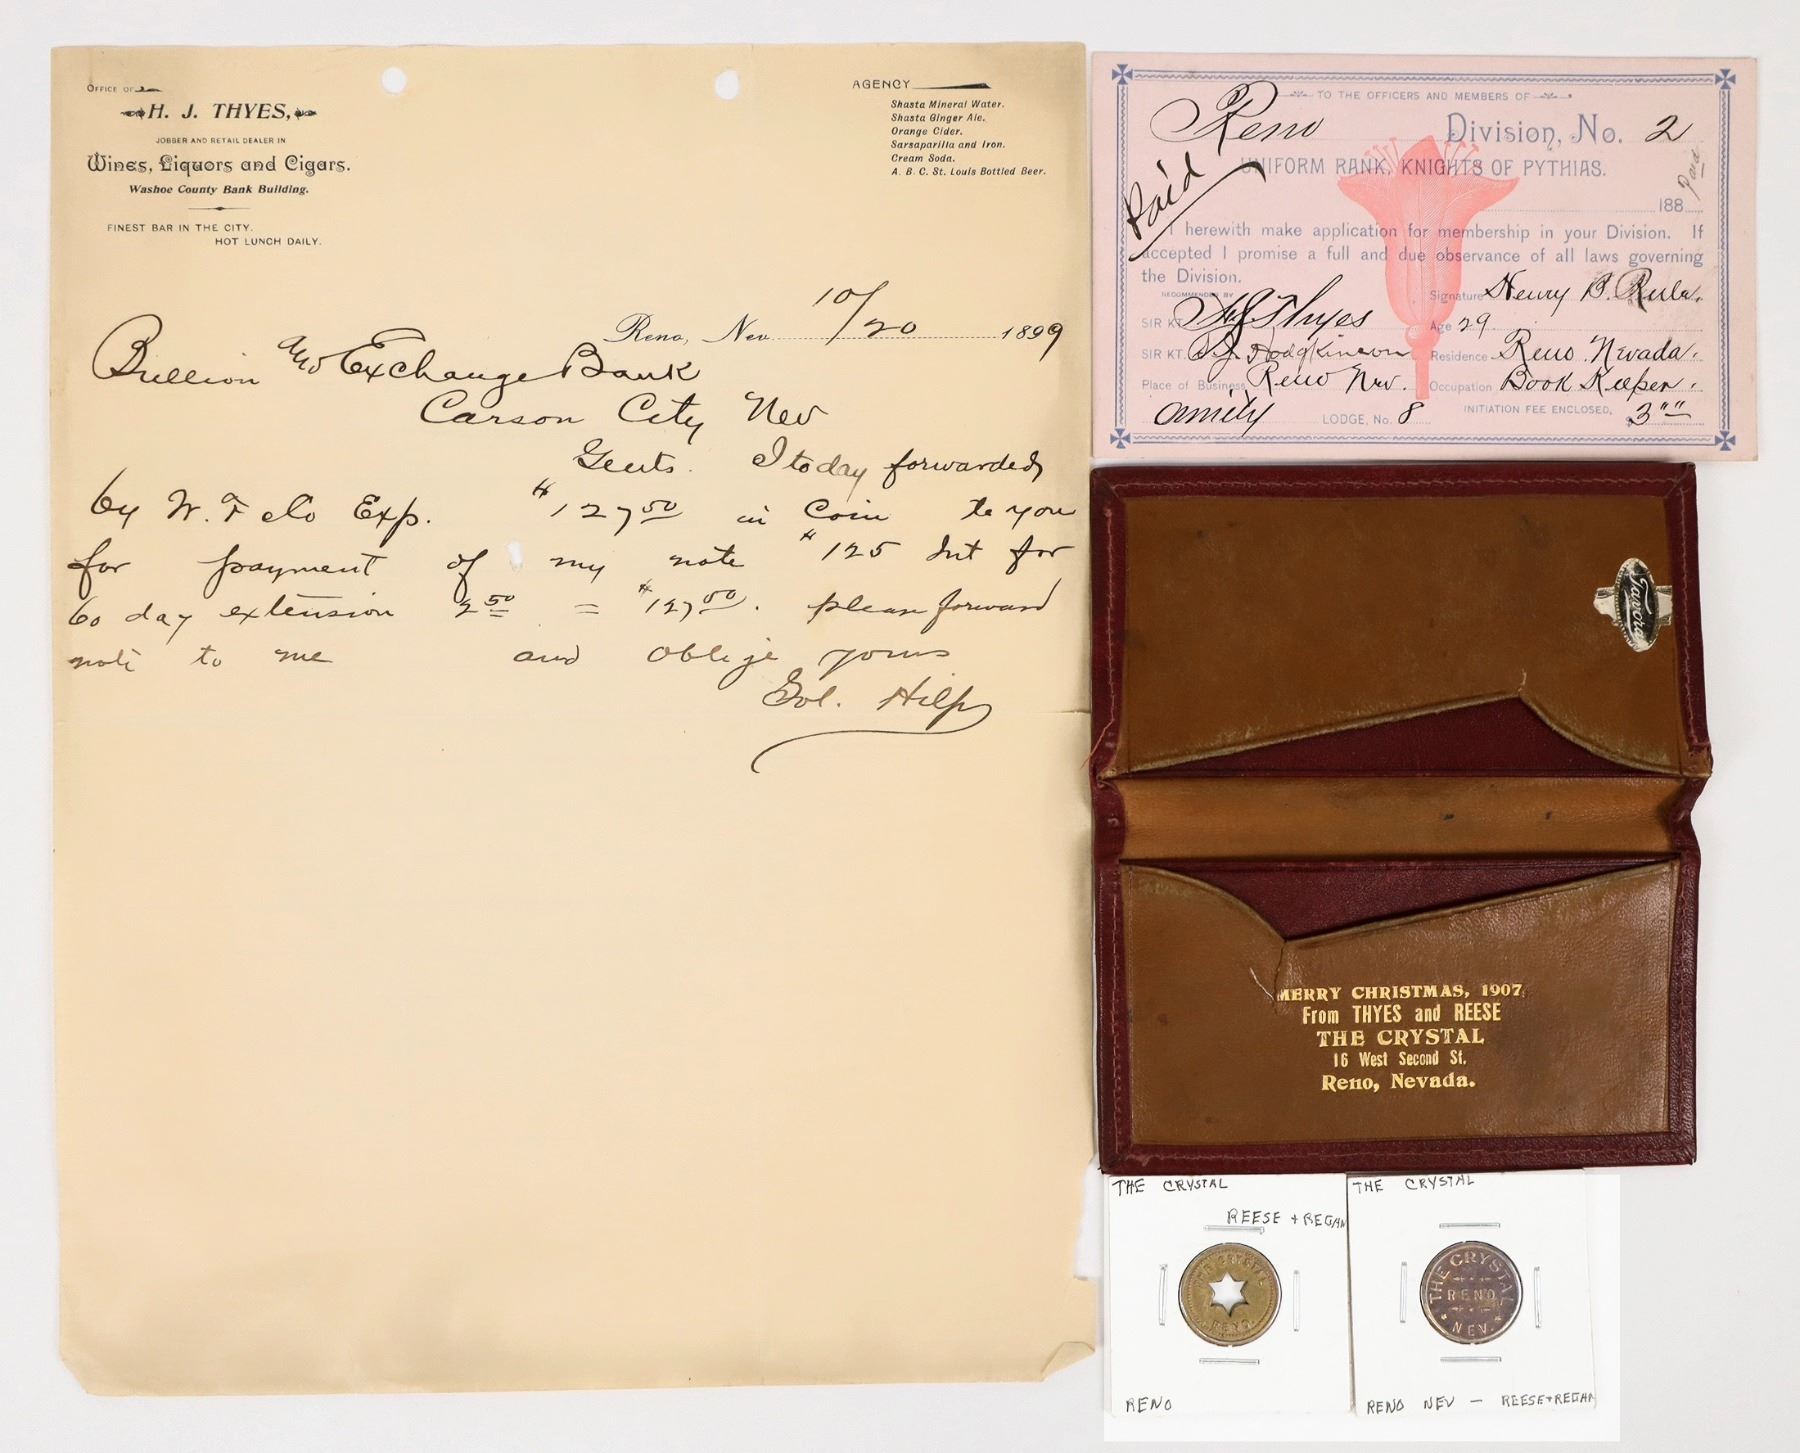 OFFICE OF
H. J. THYES,
JOBBER AND RETAIL DEALER IN
Wines, Liquors and Cigars.
Washoe County Bank Building.
FINEST BAR IN THE CITY.
HOT LUNCH DAILY.
AGENCY
Shasta Mineral Water.
Shasta Ginger Ale.
Orange Cider.
Sarsaparilla and Iron.
Cream Soda.
A. B. C. St. Louis Bottled Beer.
Reno, Nev. 10/20 1899
Bullion and Exchange Bank
Carson City Nev
Gents. I today forwarded
by W. F & Co Exp. $127 50 in Coin to you
for payment of my note $125 Int for
60 day extension 2 50 = $127 50. please forward
note to me and oblige yours
Sol. Hilp
TO THE OFFICERS AND MEMBERS OF
Reno Division, No. 2
UNIFORM RANK, KNIGHTS OF PYTHIAS.
Paid
Paid
188
I herewith make application for membership in your Division. If
accepted I promise a full and due observance of all laws governing
the Division.
RECOMMENDED BY
Signature Henry B. Rule.
SIR KT. H J Thyes
Age 29.
SIR KT. Hodgkinson
Residence Reno Nevada.
Place of Business Reno Nev.
Occupation Book Keeper.
Amity LODGE, No. 8
INITIATION FEE ENCLOSED, $3
MERRY CHRISTMAS, 1907,
From THYES and REESE
THE CRYSTAL
16 West Second St.
Reno, Nevada.
THE CRYSTAL
REESE + REGAN
THE CRYSTAL
RENO.
RENO
THE CRYSTAL
THE CRYSTAL
RENO
NEV.
RENO NEV — REESE+REGAN